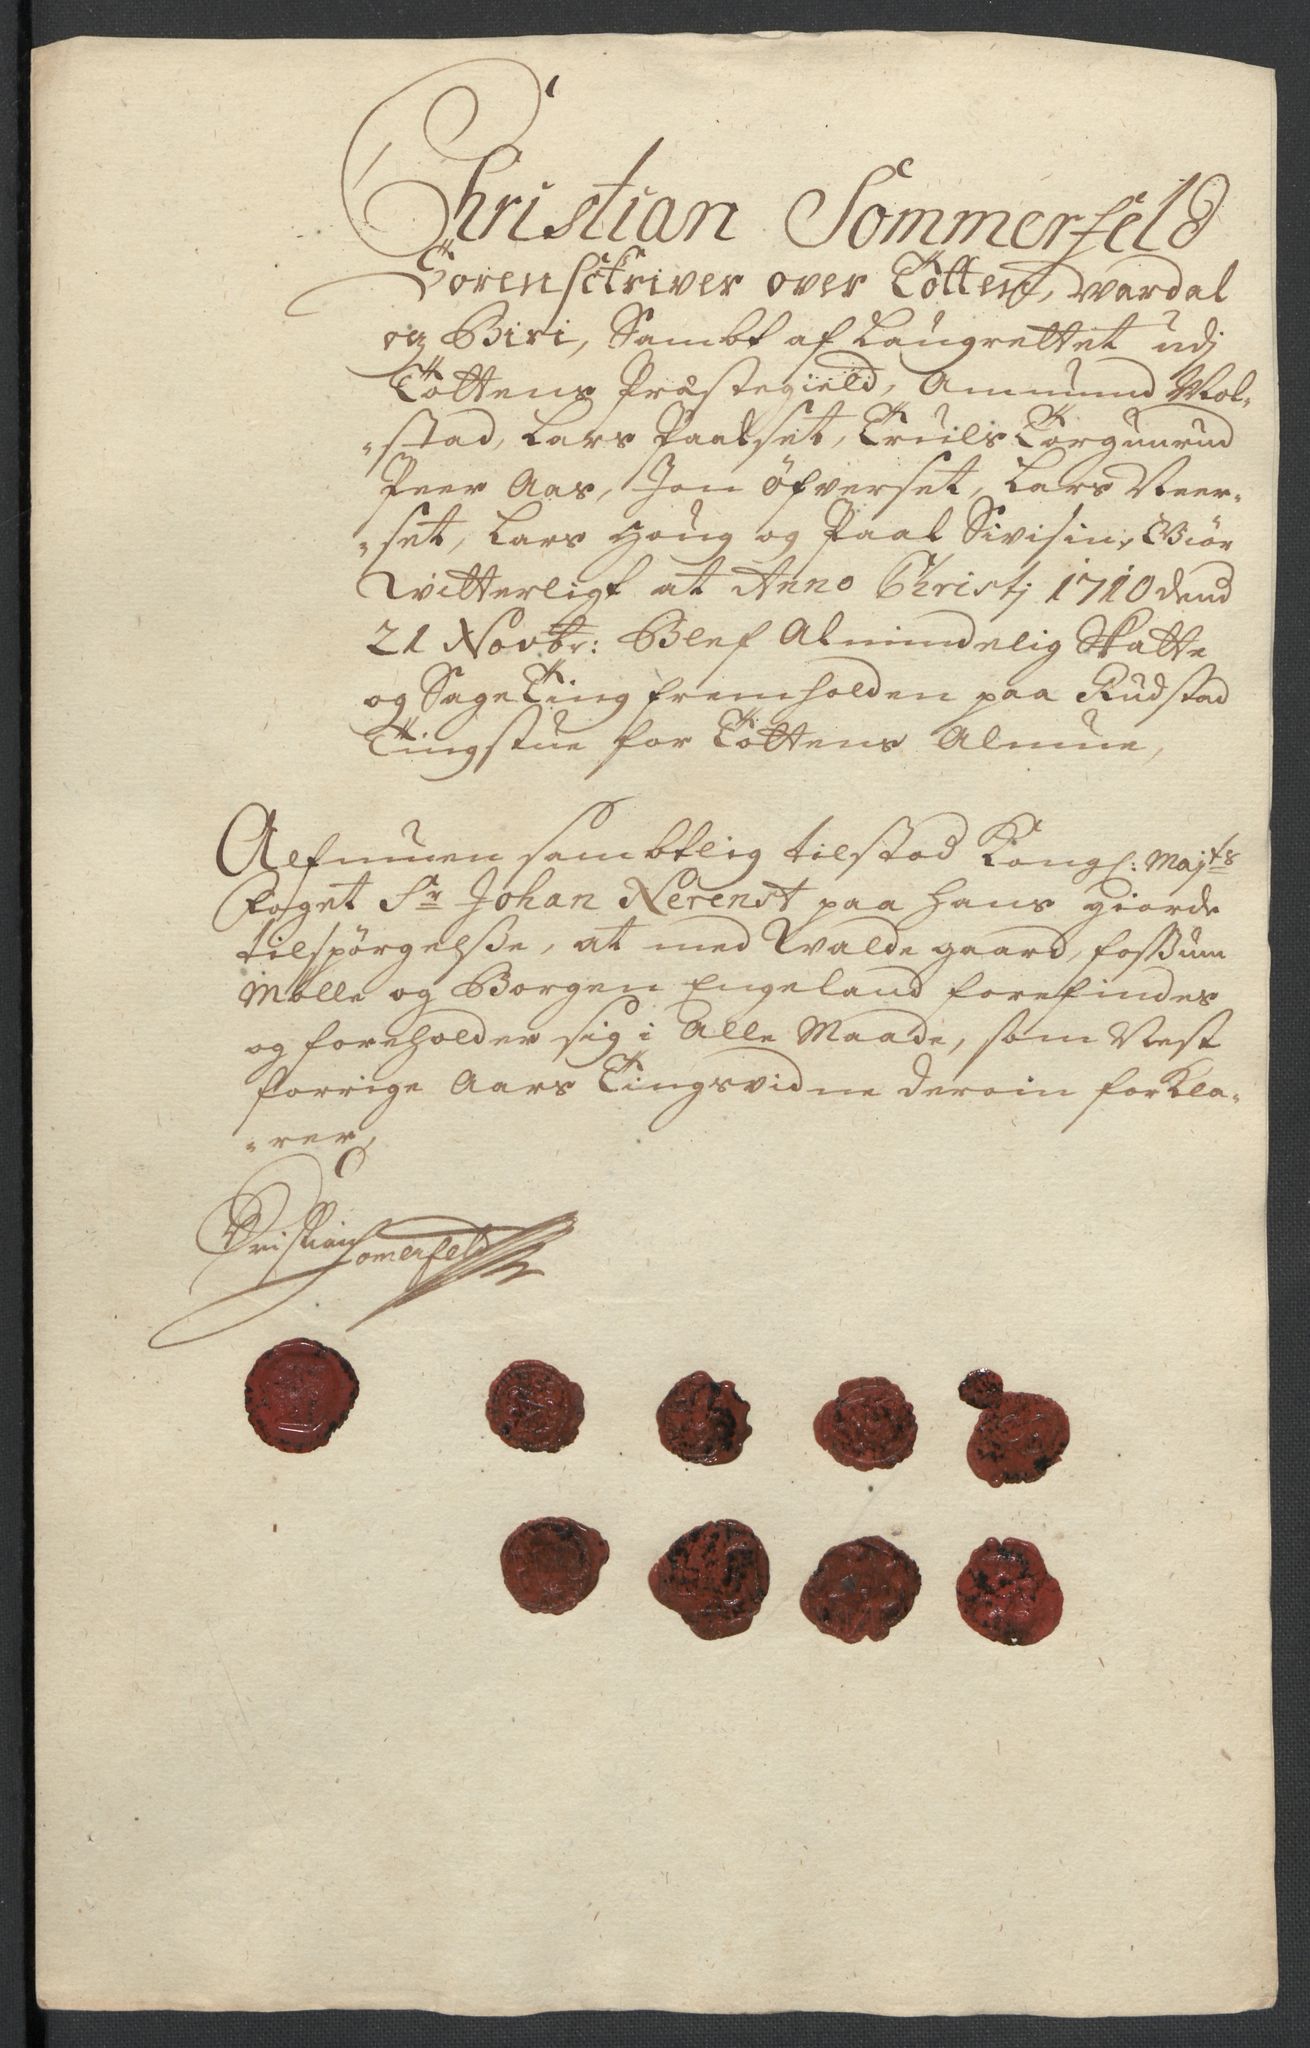 Christian Sommerfeld
Sorenschriver over Totten, Wardal
og Biri, Sambt af Laugrettet udj
Tottens Præstegield, Ammund Wol-
-stad, Lars Paalset, Truels Torgunrud
Peer Aas, Jon Öfverset, Lars Neer-
-set, Lars Houg og Paal Sivisin, Giör
Witterligt at Anno Christj 1710 dend
21 Novbr: Blef Almindelig Skatte
og Sage Ting fremholden paa Rudstad
Tingstue for Tottens Almue,
Alfmuen sambtlig tilstod Kongl: Majts
Foget Sr Johan Nerenst paa hans giorde
tilspörgelsse, at med Walde gaard, Fossum
Mölle og Borgen Engeland forefindes
og foreholder sig i Alle Maade, som Nest
forrige Aars Tingsvidne derom forkla-
-rer,
Christian Somerfeld